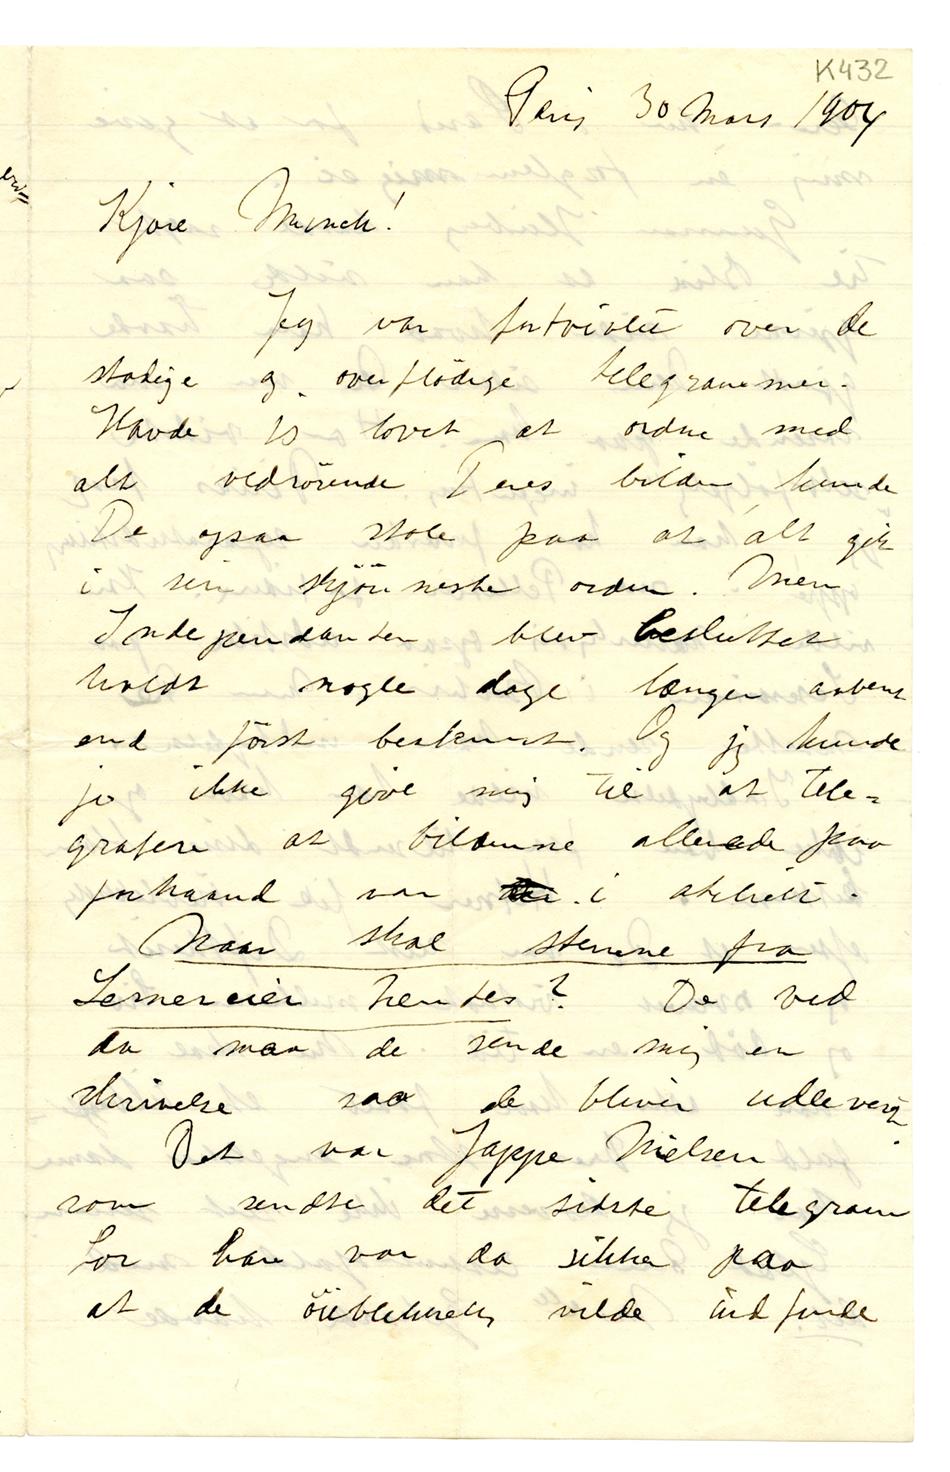 K432
Paris 30 Mars 1904
Kjære Munch!
Jeg var fortvivlet over de
stadige og overflödige telegrammer.
Havde jeg lovet at ordne med
alt vedrörende Deres bilder kunde
De ogsaa stole paa at alt gik
i sin skjönneste orden. Men
Independanten blev besluttet
holdt nogle dage længer aabent
end först bestemt. Og jeg kunde
jo ikke give mig til at tele=
grafere at bilderne allerede paa
forhaand var i atelieret.
Naar skal stenene fra
Lemercier hentes? De ved
da maa de sende mig en
skrivelse saa de bliver udleveret.
Det var Jappe Nielsen
som sendte det sidste telegram
for han var da sikker paa
at de öieblikkelig vilde indfinde